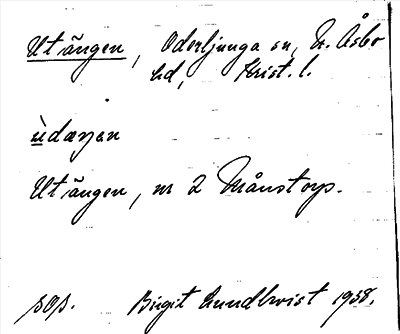 Utängen, Oderljunga sn, N. Åsbo
hd, Krist. l.
ùdaŋən
Utängen, nr 2 Månstorp.
sap. Birgit Lundkvist 1938.